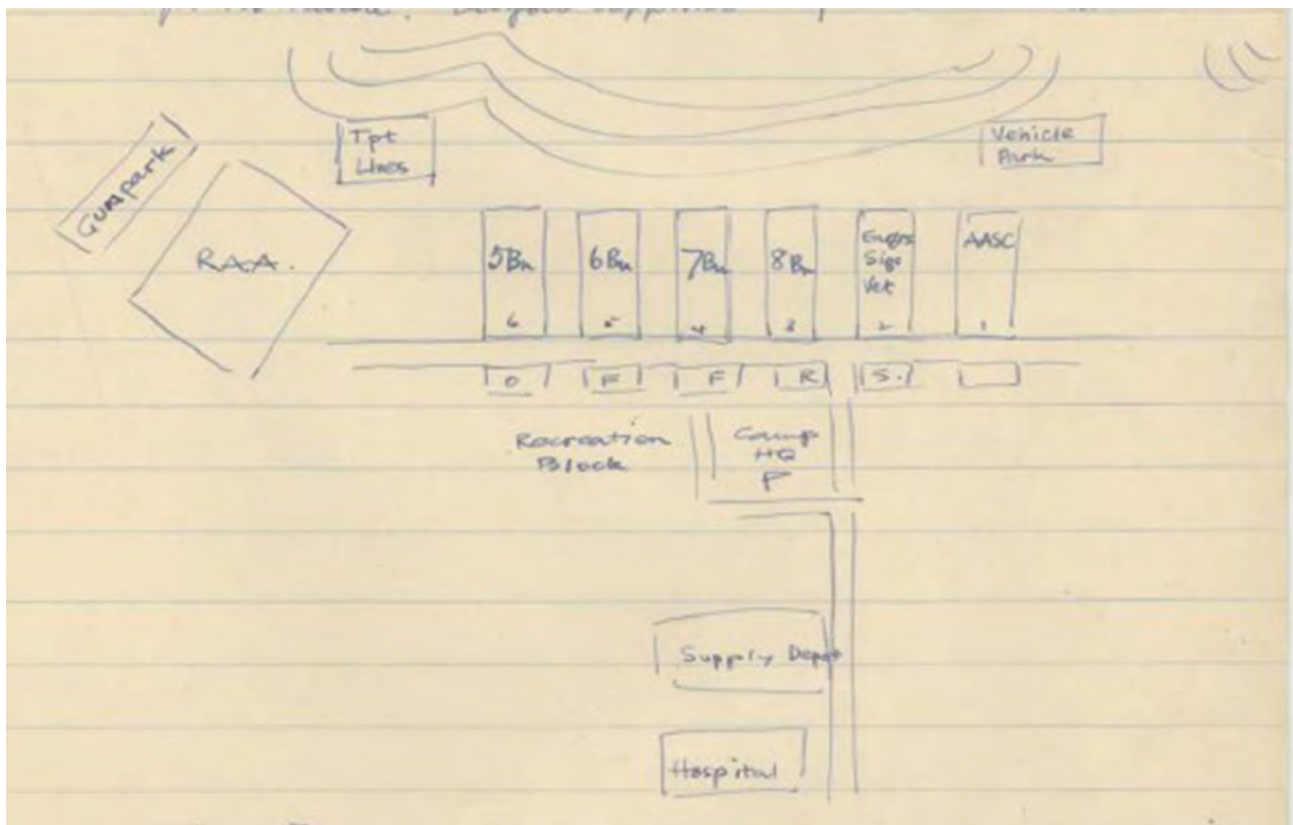 supplies
Tpt
Lines
Vehicle
Park
Gunpark
R.A.A.
5Bn
6
6Bn
5
7Bn
4
8Bn
3
Engrs
Sigs
Vet
2
AASC
1
O
F
F
R
S.
Recreation
Block
Camp
HQ
P
Supply Depot
Hospital